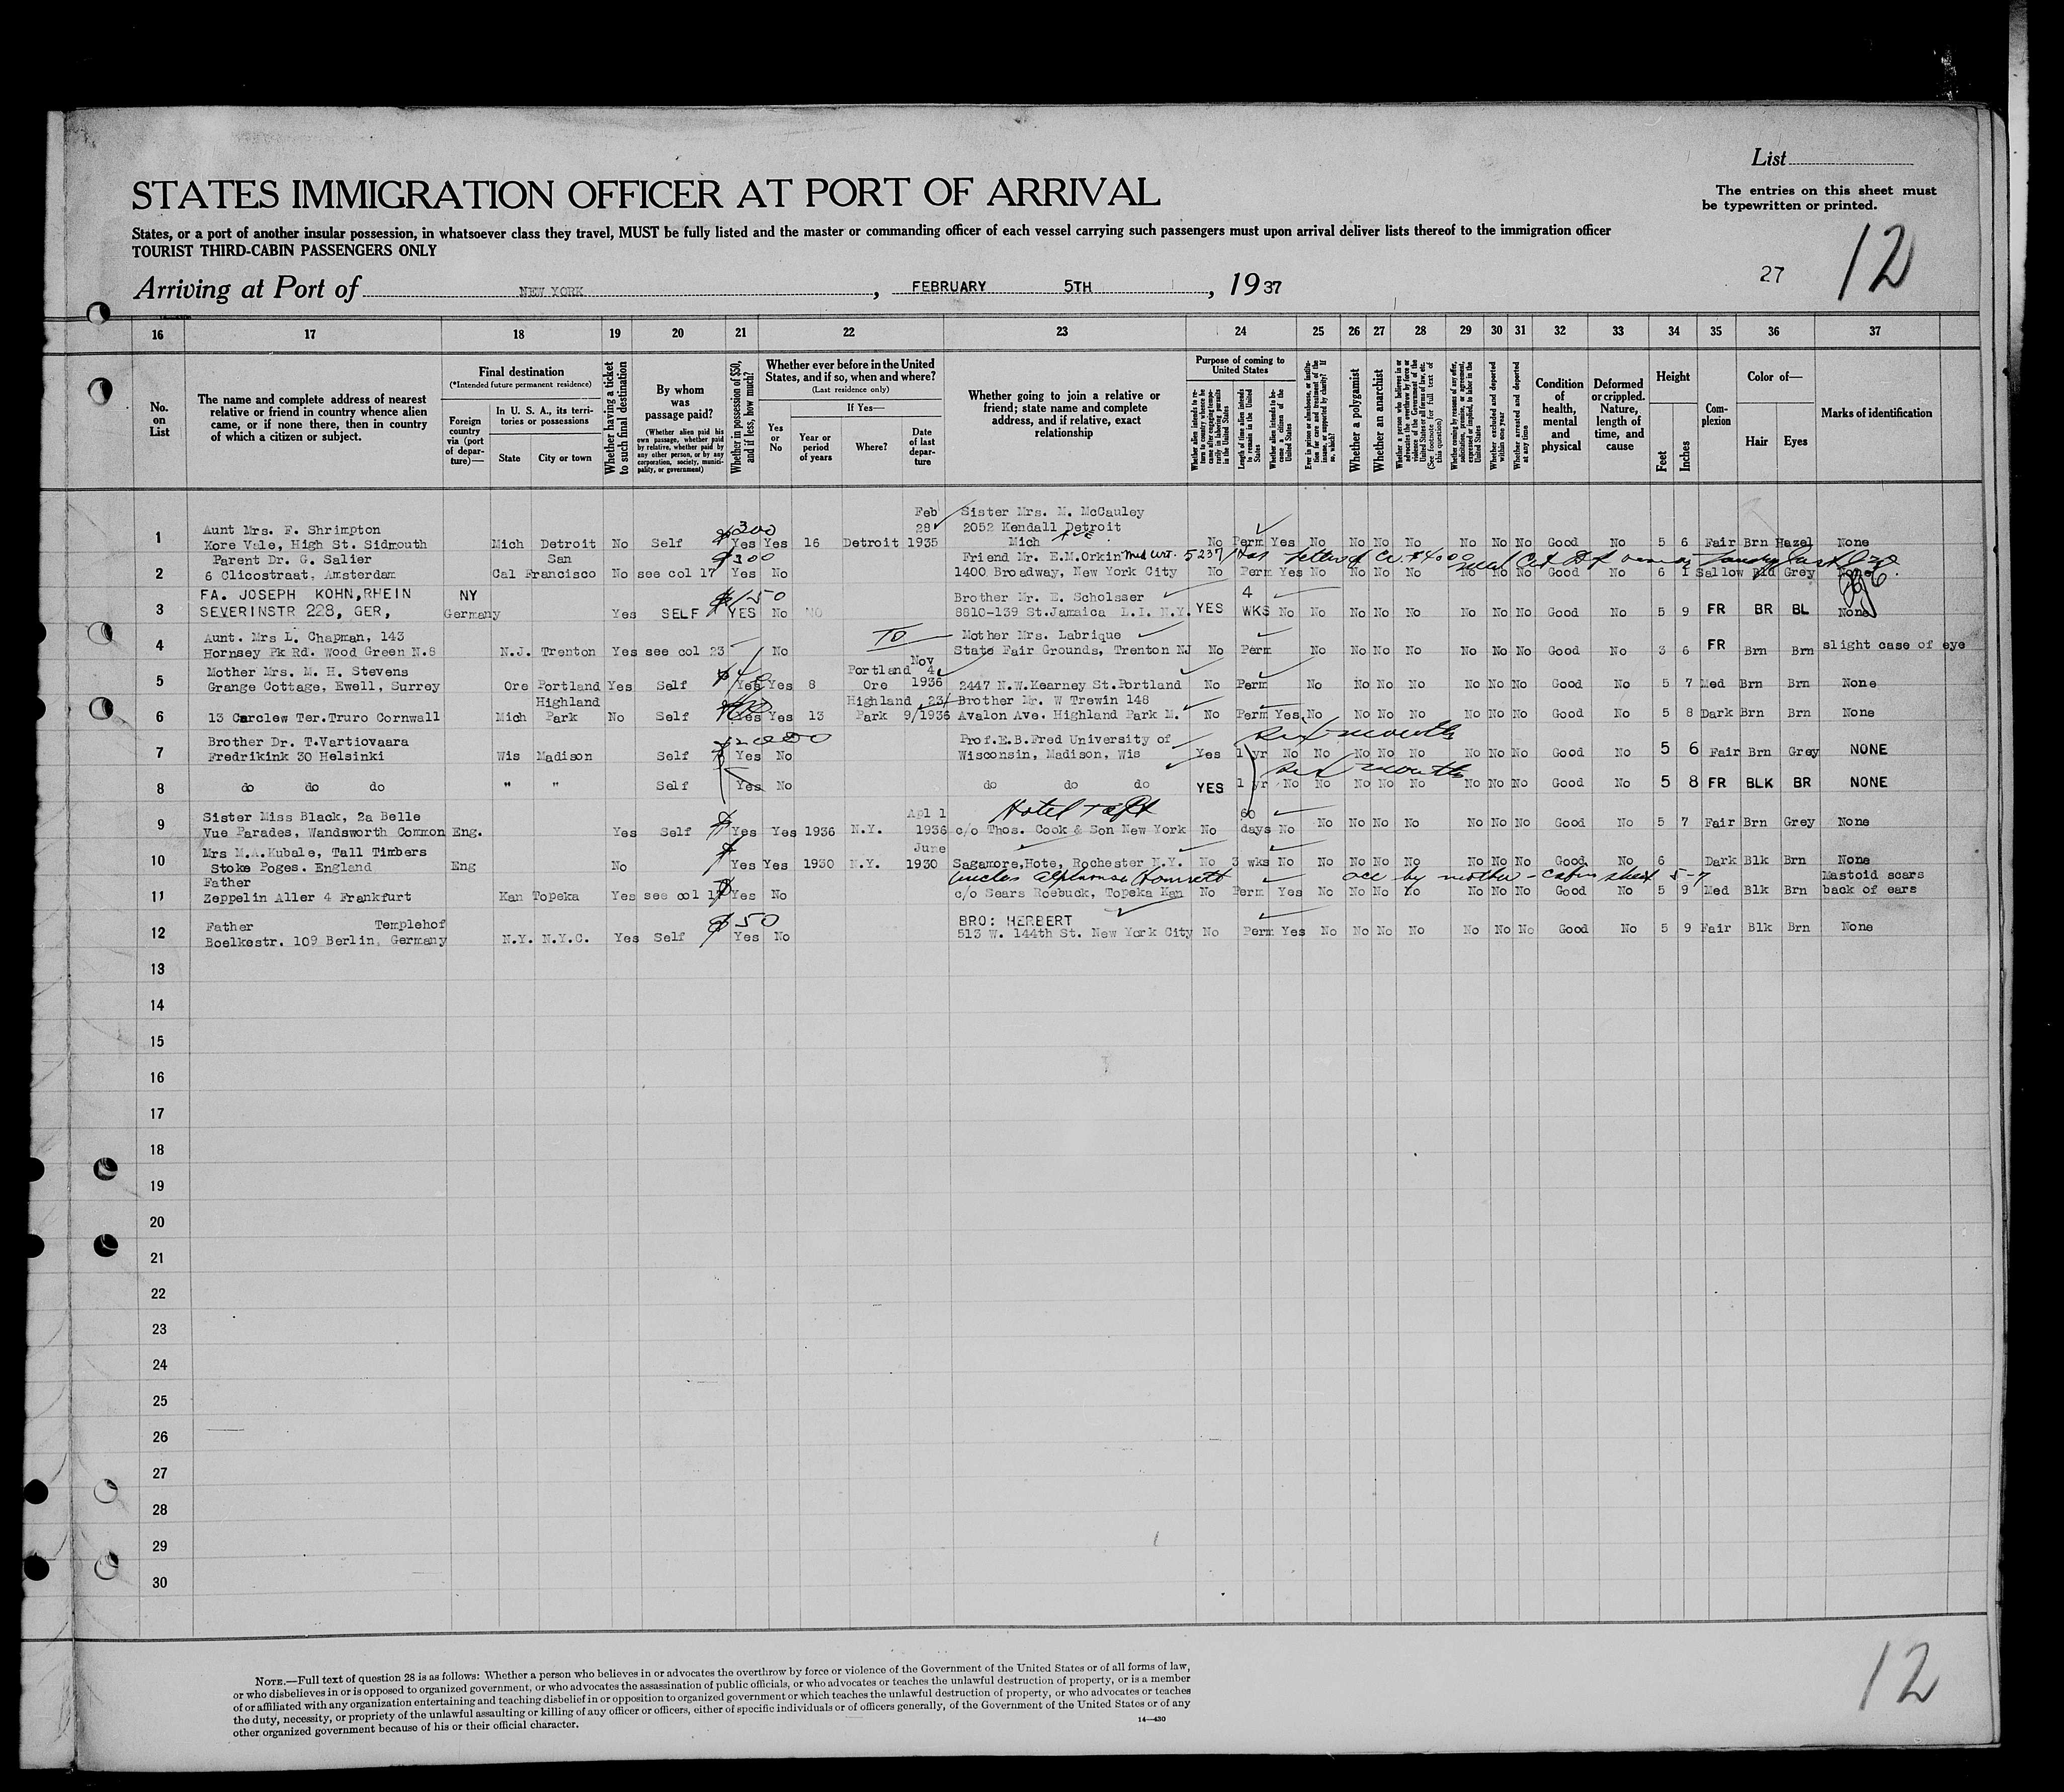 List
STATES IMMIGRATION OFFICER AT PORT OF ARRIVAL
The entries on this sheet must
be typewritten or printed.
States, or a port of another insular possession, in whatsoever class they travel, MUST be fully listed and the master or commanding officer of each vessel carrying such passengers must upon arrival deliver lists thereof to the immigration officer
TOURIST THIRD-CABIN PASSENGERS ONLY
27 12
Arriving at Port of NEW YORK, FEBRUARY 5TH, 1937
16 17 18 19 20 21 22 23 24 25 26 27 28 29 30 31 32 33 34 35 36 37
No. on List
The name and complete address of nearest relative or friend in country whence alien came, or if none there, then in country of which a citizen or subject.
Final destination
(*Intended future permanent residence)
Foreign country via (port of departure)—
In U. S. A., its territories or possessions
State
City or town
Whether having a ticket to such final destination
By whom was passage paid?
(Whether alien paid his own passage, whether paid by relative, whether paid by any other person, or by any corporation, society, municipality, or government)
Whether in possession of $50, and if less, how much?
Whether ever before in the United States, and if so, when and where?
(Last residence only)
Yes or No
If Yes—
Year or period of years
Where?
Date of last departure
Whether going to join a relative or friend; state name and complete address, and if relative, exact relationship
Purpose of coming to United States
Length of time alien intends to remain in the United States
Whether alien intends to become a citizen of the United States
Whether a polygamist
Whether an anarchist
Whether excluded and deported within one year
Whether arrested and deported at any time
Condition of health, mental and physical
Deformed or crippled. Nature, length of time, and cause
Height
Feet
Inches
Complexion
Color of—
Hair
Eyes
Marks of identification
Feb Sister Mrs. M. McCauley
Aunt Mrs. F. Shrimpton $300 28 2052 Kendall Detroit
1 Kore Vale, High St. Sidmouth Mich Detroit No Self Yes Yes 16 Detroit 1935 Mich Ave. No Perm Yes No No No No No No No Good No 5 6 Fair Brn Hazel None
Parent Dr. G. Salier San $300 Friend Mr. E.M.Orkin
2 6 Clicostraat, Amsterdam Cal Francisco No see col 17 Yes No 1400 Broadway, New York City No Perm Yes No No No No No No No Good No 6 1 Sallow Bld Grey None
FA. JOSEPH KOHN,RHEIN NY $150 Brother Mr. E. Scholsser 4
3 SEVERINSTR 228, GER, Germany Yes SELF YES No NO 8810-139 St.Jamaica L.I. N.Y. YES WKS No No No No No No No No Good No 5 9 FR BR BL None
Aunt. Mrs L. Chapman, 143 TO Mother Mrs. Labrique
4 Hornsey Pk Rd. Wood Green N.8 N.J. Trenton Yes see col 23 No State Fair Grounds, Trenton NJ No Perm No No No No No No No Good No 3 6 FR Brn Brn slight case of eye
Mother Mrs. M. H. Stevens Portland Nov 4
5 Grange Cottage, Ewell, Surrey Ore Portland Yes Self Yes Yes 8 Ore 1936 2447 N.W.Kearney St.Portland No Perm No No No No No No No Good No 5 7 Med Brn Brn None
Highland Highland 23/ Brother Mr. W Trewin 148
6 13 Carclew Ter.Truro Cornwall Mich Park No Self Yes Yes 13 Park 9/1936 Avalon Ave. Highland Park M. No Perm Yes No No No No No No No Good No 5 8 Dark Brn Brn None
Brother Dr. T.Vartiovaara Prof.E.B.Fred University of six months
7 Fredrikink 30 Helsinki Wis Madison Self Yes No Wisconsin, Madison, Wis Yes 1 yr No No No No No No No No Good No 5 6 Fair Brn Grey NONE
six months
8 do do do " " Self Yes No do do do YES 1 yr No No No No No No No No Good No 5 8 FR BLK BR NONE
Sister Miss Black, 2a Belle Apl 1 Hotel Taft 60
9 Vue Parades, Wandsworth Common Eng. Yes Self Yes Yes 1936 N.Y. 1936 c/o Thos. Cook & Son New York No days No No No No No No No No Good No 5 7 Fair Brn Grey None
Mrs M.A.Kubale, Tall Timbers June
10 Stoke Poges. England Eng No Yes Yes 1930 N.Y. 1930 Sagamore,Hote, Rochester N.Y. No 3 wks No No No No No No No No Good No 6 Dark Blk Brn None
Father acc by mother - cabin sheet 5-7 Mastoid scars
11 Zeppelin Aller 4 Frankfurt Kan Topeka Yes see col 17 Yes No c/o Sears Roebuck, Topeka Kan No Perm Yes No No No No No No No Good No 5 9 Med Blk Brn back of ears
Father Templehof $50 BRO: HERBERT
12 Boelkestr. 109 Berlin, Germany N.Y. N.Y.C. Yes Self Yes No 513 W. 144th St. New York City No Perm Yes No No No No No No No Good No 5 9 Fair Blk Brn None
13
14
15
16
17
18
19
20
21
22
23
24
25
26
27
28
29
30
NOTE.—Full text of question 28 is as follows: Whether a person who believes in or advocates the overthrow by force or violence of the Government of the United States or of all forms of law,
or who disbelieves in or is opposed to organized government, or who advocates the assassination of public officials, or who advocates or teaches the unlawful destruction of property, or is a member
of or affiliated with any organization entertaining and teaching disbelief in or opposition to organized government or which teaches the unlawful destruction of property, or who advocates or teaches
the duty, necessity, or propriety of the unlawful assaulting or killing of any officer or officers, either of specific individuals or of officers generally, of the Government of the United States or of any
other organized government because of his or their official character.
14—430
12